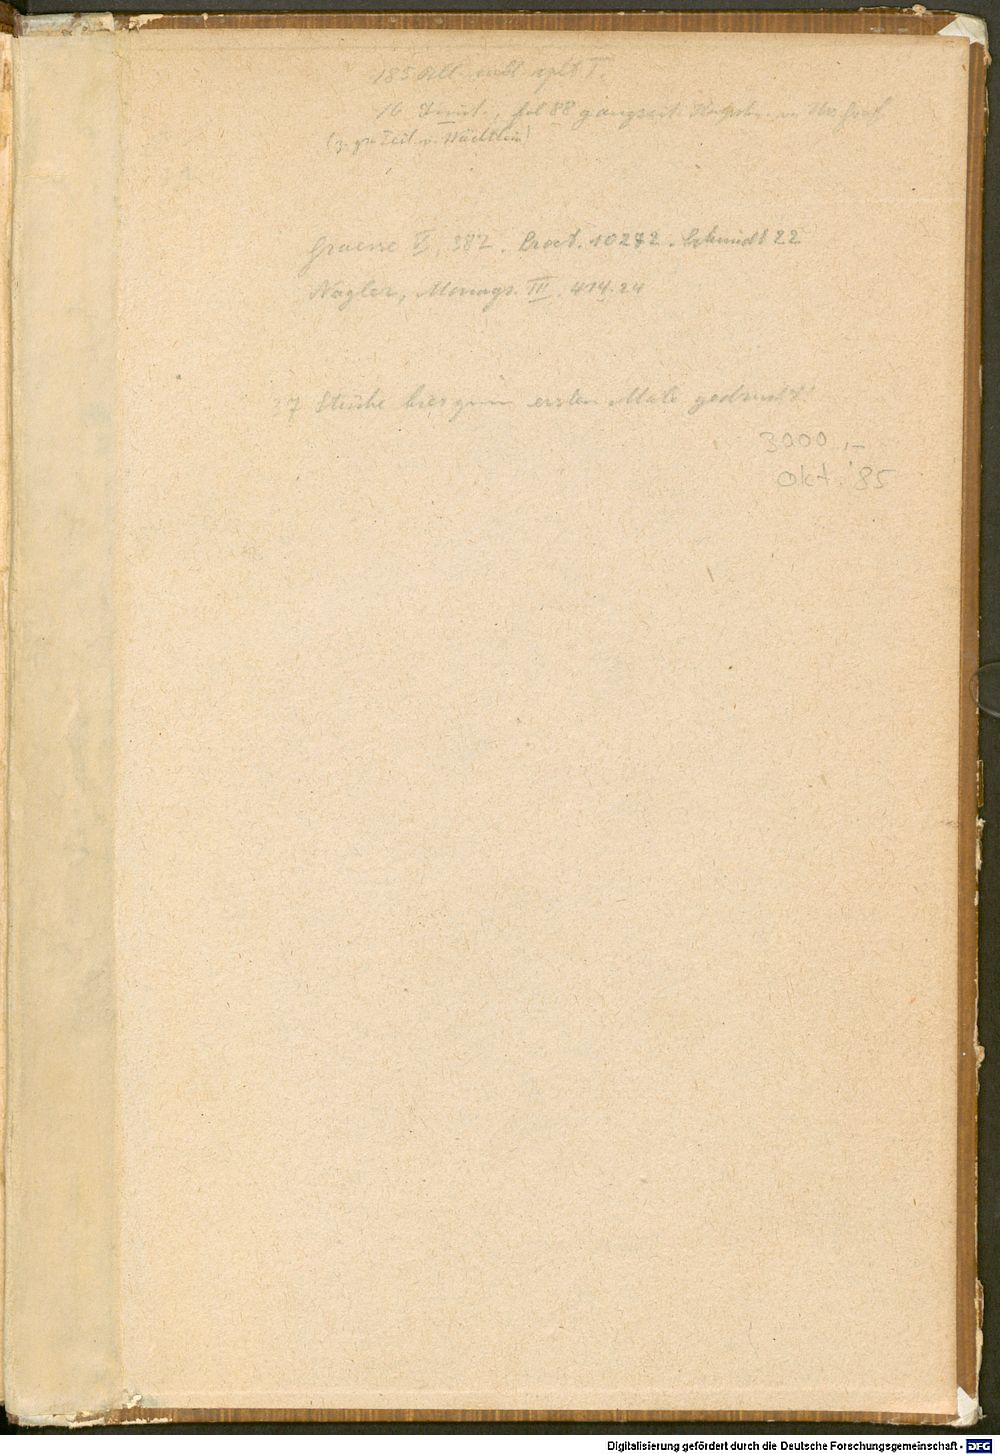 185 Abb. inkl. Tplt T.
16 Init., fol 88 ganzseit. Kupfer. v. Urs Graf
(z. gr. Teil v. Wächtlin)
Graesse V, 382. Proct. 10272. Schmidt 22
Nagler, Monogr. III. 414.24
37 Stücke hier zum ersten Male gedruckt!
3000,-
Okt. '85
Digitalisierung gefördert durch die Deutsche Forschungsgemeinschaft - DFG